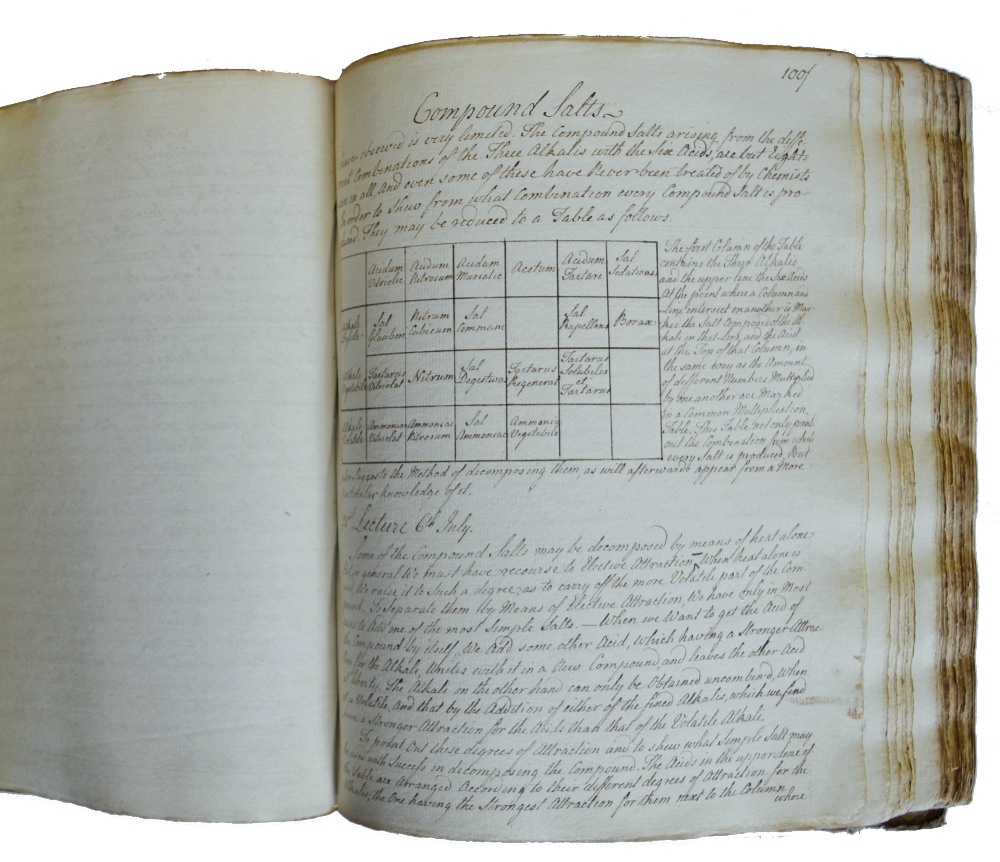 100
Compound Salts
observed is very limited. The Compound Salts arising from the diffe-
Combinations of the Three Alkalis with the Six Acids, are but Eight-
in all, And even some of these have Never been treated of by Chemists
In order to shew from what Combination every Compound Salt is pro-
They may be reduced to a Table as follows.
Acidum Vitriolic
Acidum Nitrosum
Acidum Muriatic
Acetum
Acidum Tartare
Sal Sedations
Alkali
Sal Glauberi
Nitrum Cubicum
Sal Commune
Sal Rupellens
Borax
Tartarus Vitriolat
Nitrum
Sal Digestivus
Tartarus Regenerat
Tartarus Solubiles et Tartarus
Alkali Volatile
Ammoniac Vitriolat
Ammoniac Nitrosum
Sal Ammoniac
Ammoniac Vegetabile
The first Column of the Table
contains the Three Alkalis,
and the upper line the Six Acids
At the point where a Column and
Line intersect one another is Mar-
ked the Salt Composed of the Al-
kali in that Line, and the Acid
at the Top of that Column, in
the same way as the Amount
of different Numbers Multiplied
by one another are Marked
in a Common Multiplication
Table, This Table not only point
out the Combination from which
every Salt is produced, But
also suggests the Method of decomposing them, as will afterwards appear from a More
particular knowledge of it.
Lecture 6th July.
Some of the Compound Salts may be decomposed by means of heat alone
in general We must have recourse to Elective Attraction. When heat alone is
We raise it to Such a degree, as to carry off the more Volatile part of the Com-
To Separate them by Means of Elective Attraction, We have only in Most
to Add one of the most Simple Salts. — When we Want to get the Acid of
the Compound by itself, We Add some other Acid, which having a Stronger Attrac-
tion for the Alkali, Unites with it in a New Compound, and leaves the other Acid
at liberty. The Alkali on the other hand can only be Obtained uncombin'd, When
it is Volatile, And that by the Addition of either of the fixed Alkalis, which we find
have a Stronger Attraction for the Acids than that of the Volatile Alkali.
To point out these degrees of Attraction and to shew what Simple Salt may
be used with Success in decomposing the Compound. The Acids in the upper line of
the Table are Arranged According to their different degrees of Attraction for the
Alkalis, the One having the Strongest Attraction for them next to the Column
where